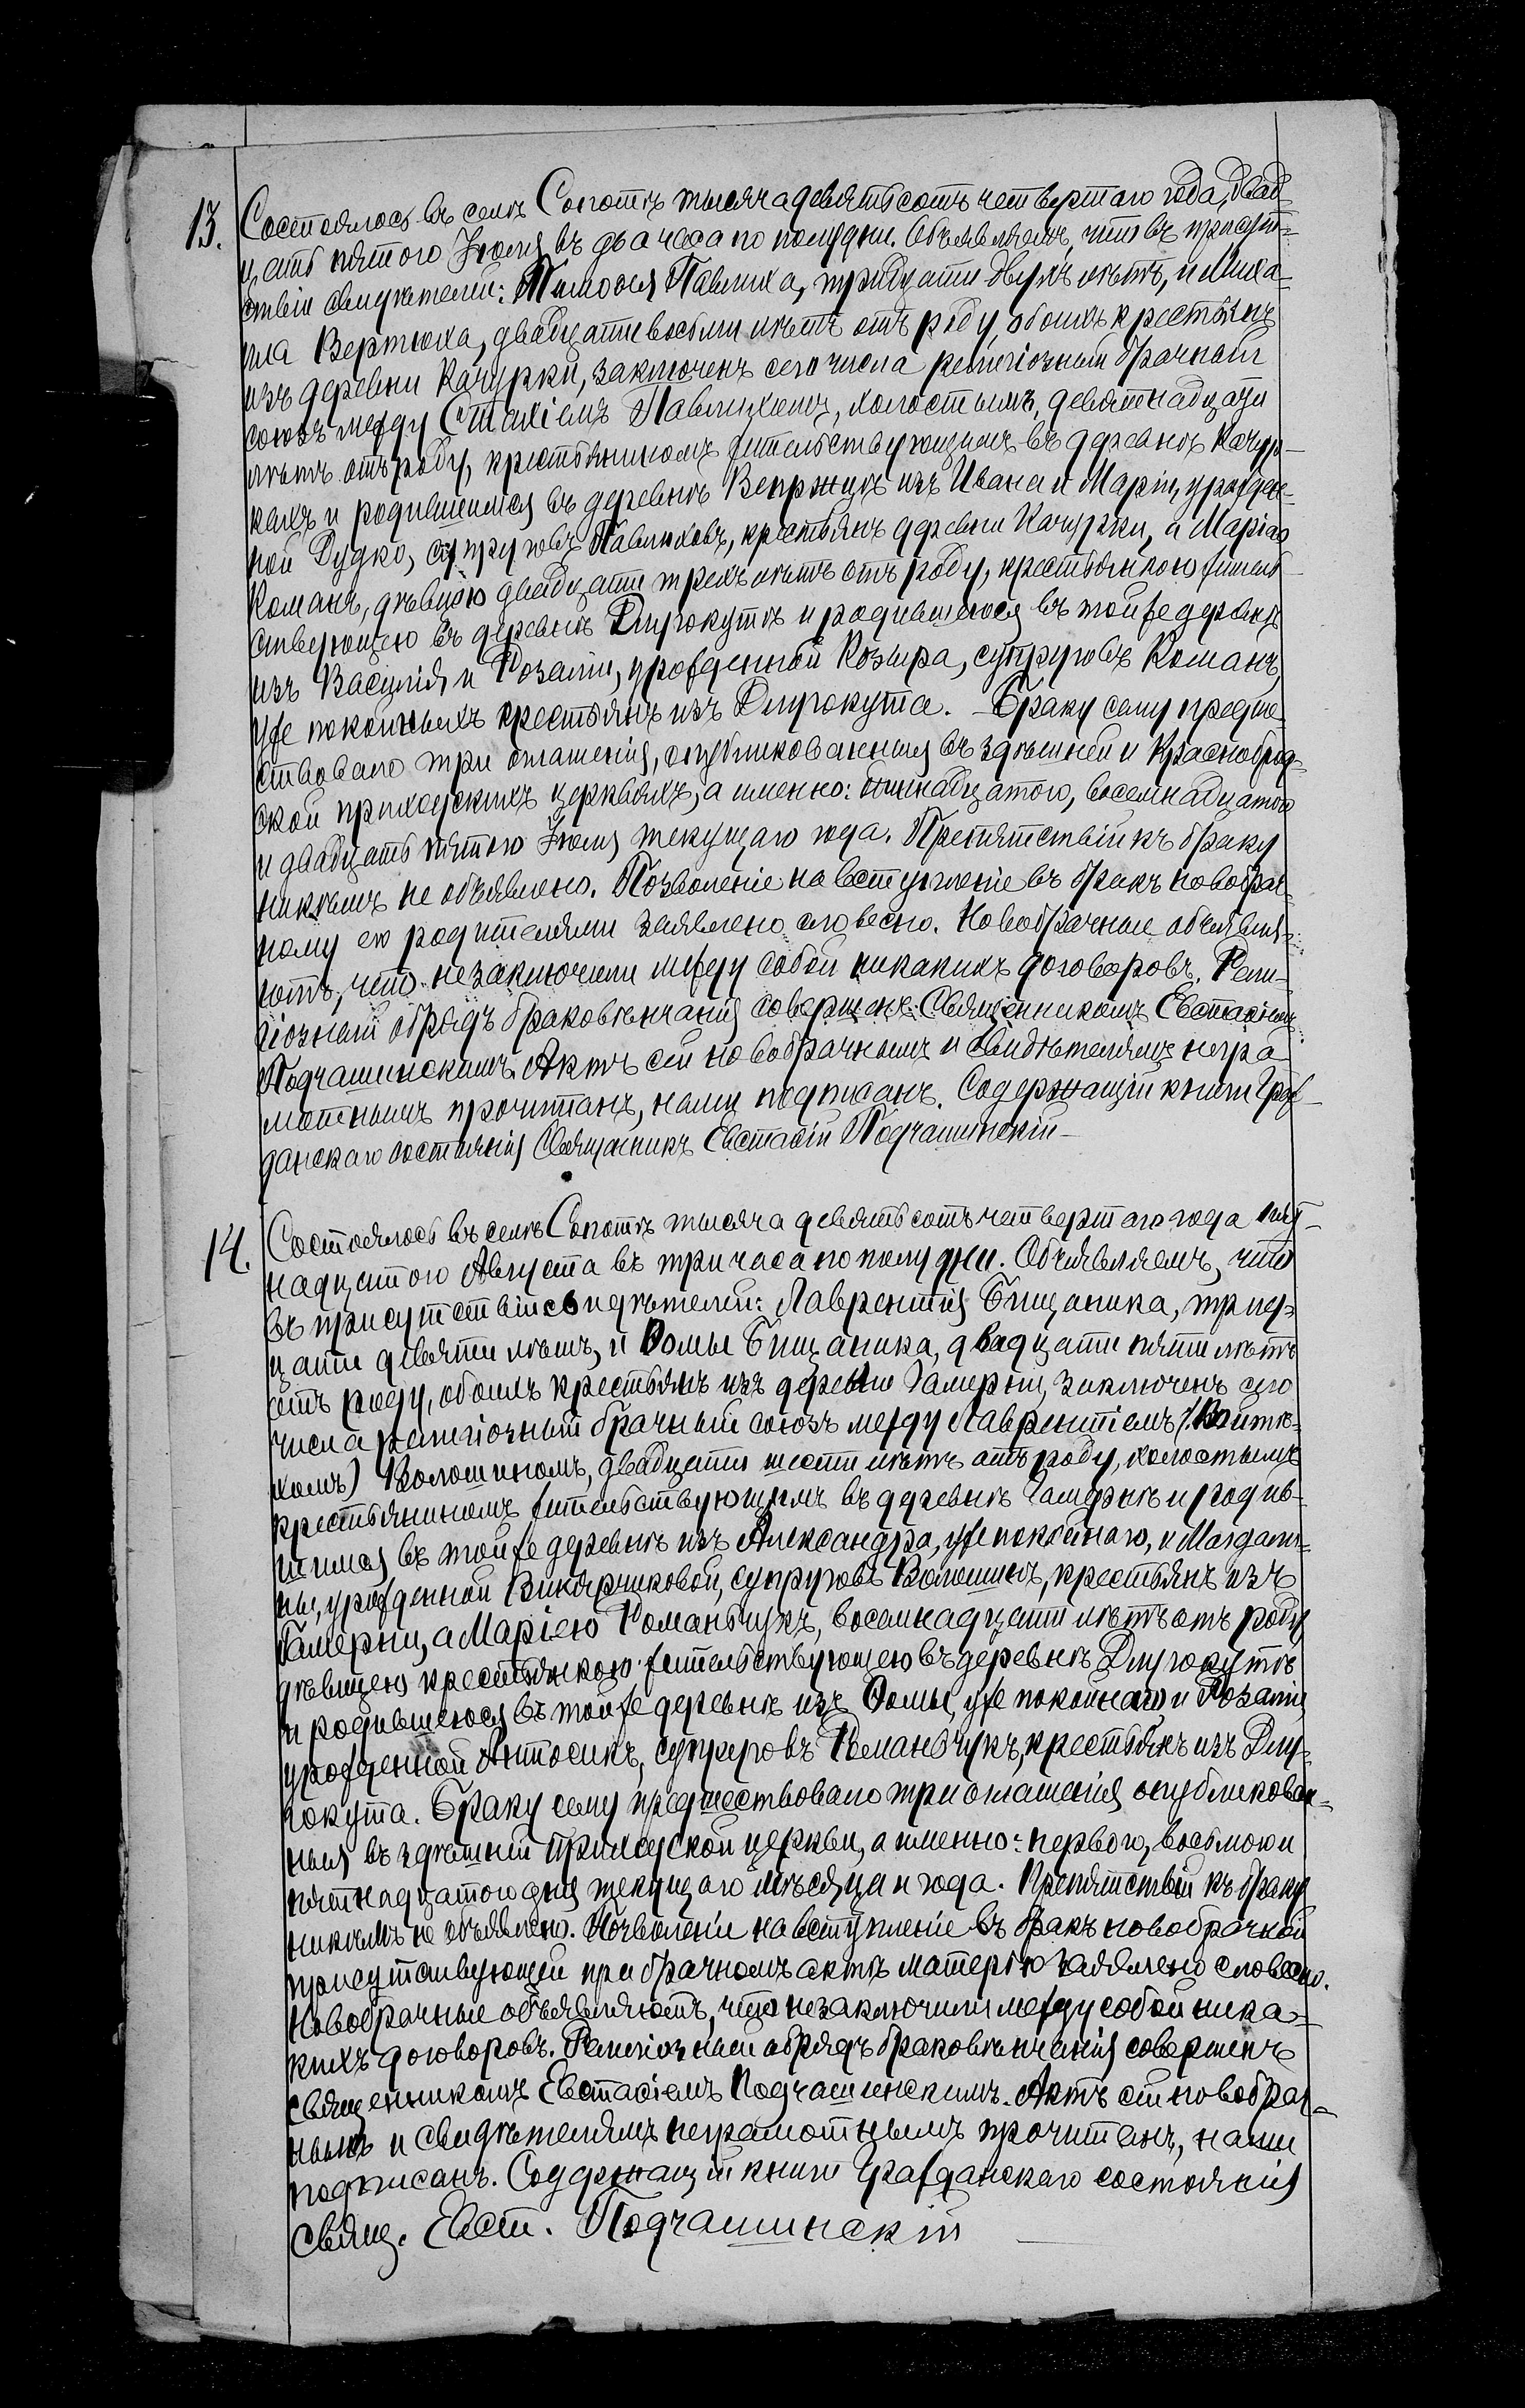 13. Состоялось въ селѣ Сопотѣ тысяча девятьсотъ четвертаго года, двад-
цать пятого Іюля въ два часа по полудни. Объявляемъ, что въ присут-
ствіи свидѣтелей: Тимофея Павлиха, тридцати двухъ лѣтъ, и Миха-
ила Вертюха, двадцати восьми лѣтъ отъ роду, обоихъ крестьянъ
изъ деревни Качурки, заключенъ сего числа религіозный брачный
союзъ между Стахіемъ Павлихомъ, холостымъ, девятнадцати
лѣтъ отъ роду, крестьяниномъ жительствующимъ въ деревнѣ Качур-
кахъ и родившимся въ деревнѣ Вепржцѣ изъ Ивана и Маріи, урожден-
ной Дудко, супруговъ Павлиховъ, крестьянъ деревни Качурки, а Маріею
Команъ, дѣвицею двадцати трехъ лѣтъ отъ роду, крестьянкою житель-
ствующею въ деревнѣ Длугокутѣ и родившеюся въ той же деревнѣ
изъ Василія и Розаліи, урожденной Козыра, супруговъ Команъ,
уже покойныхъ крестьянъ изъ Длугокута. Браку сему предше-
ствовало три оглашенія, опубликованныя въ здѣшней и Красноброд-
ской приходскихъ церквахъ, а именно: одинадцатого, восемнадцатого
и двадцать пятого Іюля текущаго года. Препятствій къ браку
никѣмъ не объявлено. Позволеніе на вступленіе въ бракъ новобрач-
ному его родителями заявлено словесно. Новобрачные объявля-
ютъ, что незаключили между собой никакихъ договоровъ. Рели-
гіозный обрядъ браковѣнчанія совершенъ Священникомъ Евстафіемъ
Подчашинскимъ. Актъ сей новобрачнымъ и свидѣтелямъ негра-
мотнымъ прочитанъ, нами подписанъ. Содержащій книги Граж-
данскаго состоянія Священникъ Евстафій Подчашинскій
14. Состоялось въ селѣ Сопотѣ тысяча девятьсотъ четвертаго года пят-
надцатого Августа въ три часа по полудни. Объявляемъ, что
въ присутствіи свидѣтелей: Лаврентія Бицаника, трид-
цати девяти лѣтъ, и Ѳомы Бицаника, двадцати пяти лѣтъ
отъ роду, обоихъ крестьянъ изъ деревни Гамерни, заключенъ сего
числа религіозный брачный союзъ между Лаврентіемъ (Войтѣ-
хомъ) Волошиномъ, двадцати шести лѣтъ отъ роду, холостымъ
крестьяниномъ жительствующимъ въ деревнѣ Гамернѣ и родив-
шимся въ той же деревнѣ изъ Александра, уже покойнаго, и Магдали-
ны, урожденной Викарчиковой, супруговъ Волошинъ, крестьянъ изъ
Гамерни, а Маріею Романьчукъ, восемнадцати лѣтъ отъ роду
дѣвицею крестьянкою жительствующею въ деревнѣ Длугокутѣ
и родившеюся въ той же деревнѣ изъ Ѳомы, уже покойнаго, и Розаліи
урожденной Антосикъ, супруговъ Романьчукъ, крестьянъ изъ Длу-
гокута. Браку сему предшествовало три оглашенія опубликован-
ныя въ здѣшней приходской церкви, а именно: первого, восьмого и
пятнадцатого дня текущаго мѣсяца и года. Препятствій къ браку
никѣмъ не объявлено. Позволеніе на вступленіе въ бракъ новобрачной
присутствующей при брачномъ актѣ матерью заявлено словесно.
Новобрачные объявляютъ, что незаключили между собой ника-
кихъ договоровъ. Религіозный обрядъ браковѣнчанія совершенъ
священникомъ Евстафіемъ Подчашинскимъ. Актъ сей новобрач-
нымъ и свидѣтелямъ неграмотнымъ прочитанъ, нами
подписанъ. Содержащій книги Гражданскаго состоянія
Свящ. Евст. Подчашинскій